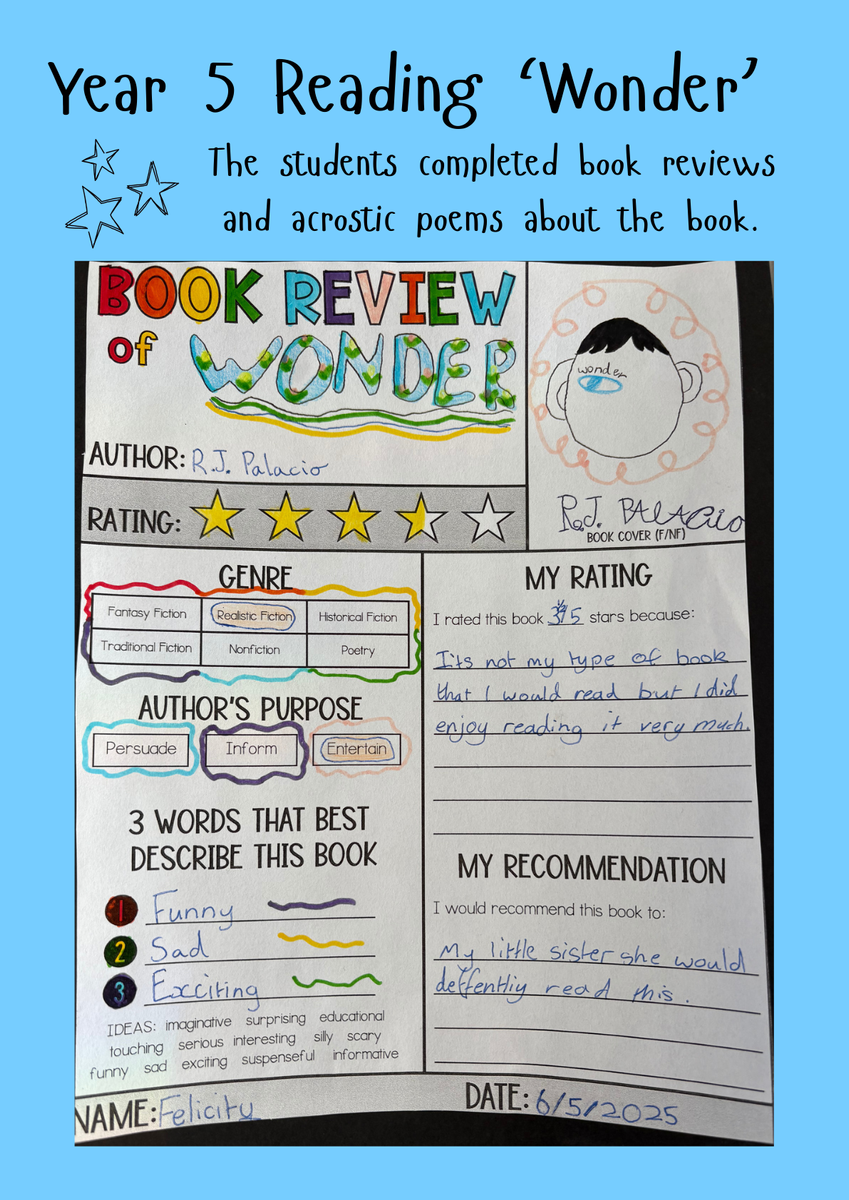 Year 5 Reading ‘Wonder’
The students completed book reviews
and acrostic poems about the book.
BOOK REVIEW
of WONDER
wonder
AUTHOR: R.J. Palacio
R.J. PALACIO
BOOK COVER (F/NF)
RATING:
GENRE
Fantasy Fiction Realistic Fiction Historical Fiction
Traditional Fiction Nonfiction Poetry
AUTHOR'S PURPOSE
Persuade Inform Entertain
3 WORDS THAT BEST
DESCRIBE THIS BOOK
1 Funny
2 Sad
3 Exciting
IDEAS: imaginative surprising educational
touching serious interesting silly scary
funny sad exciting suspenseful informative
MY RATING
I rated this book stars because:
Its not my type of book
that I would read but I did
enjoy reading it very much.
MY RECOMMENDATION
I would recommend this book to:
My little sister she would
deffentliy read this.
NAME: Felicity
DATE: 6/5/2025